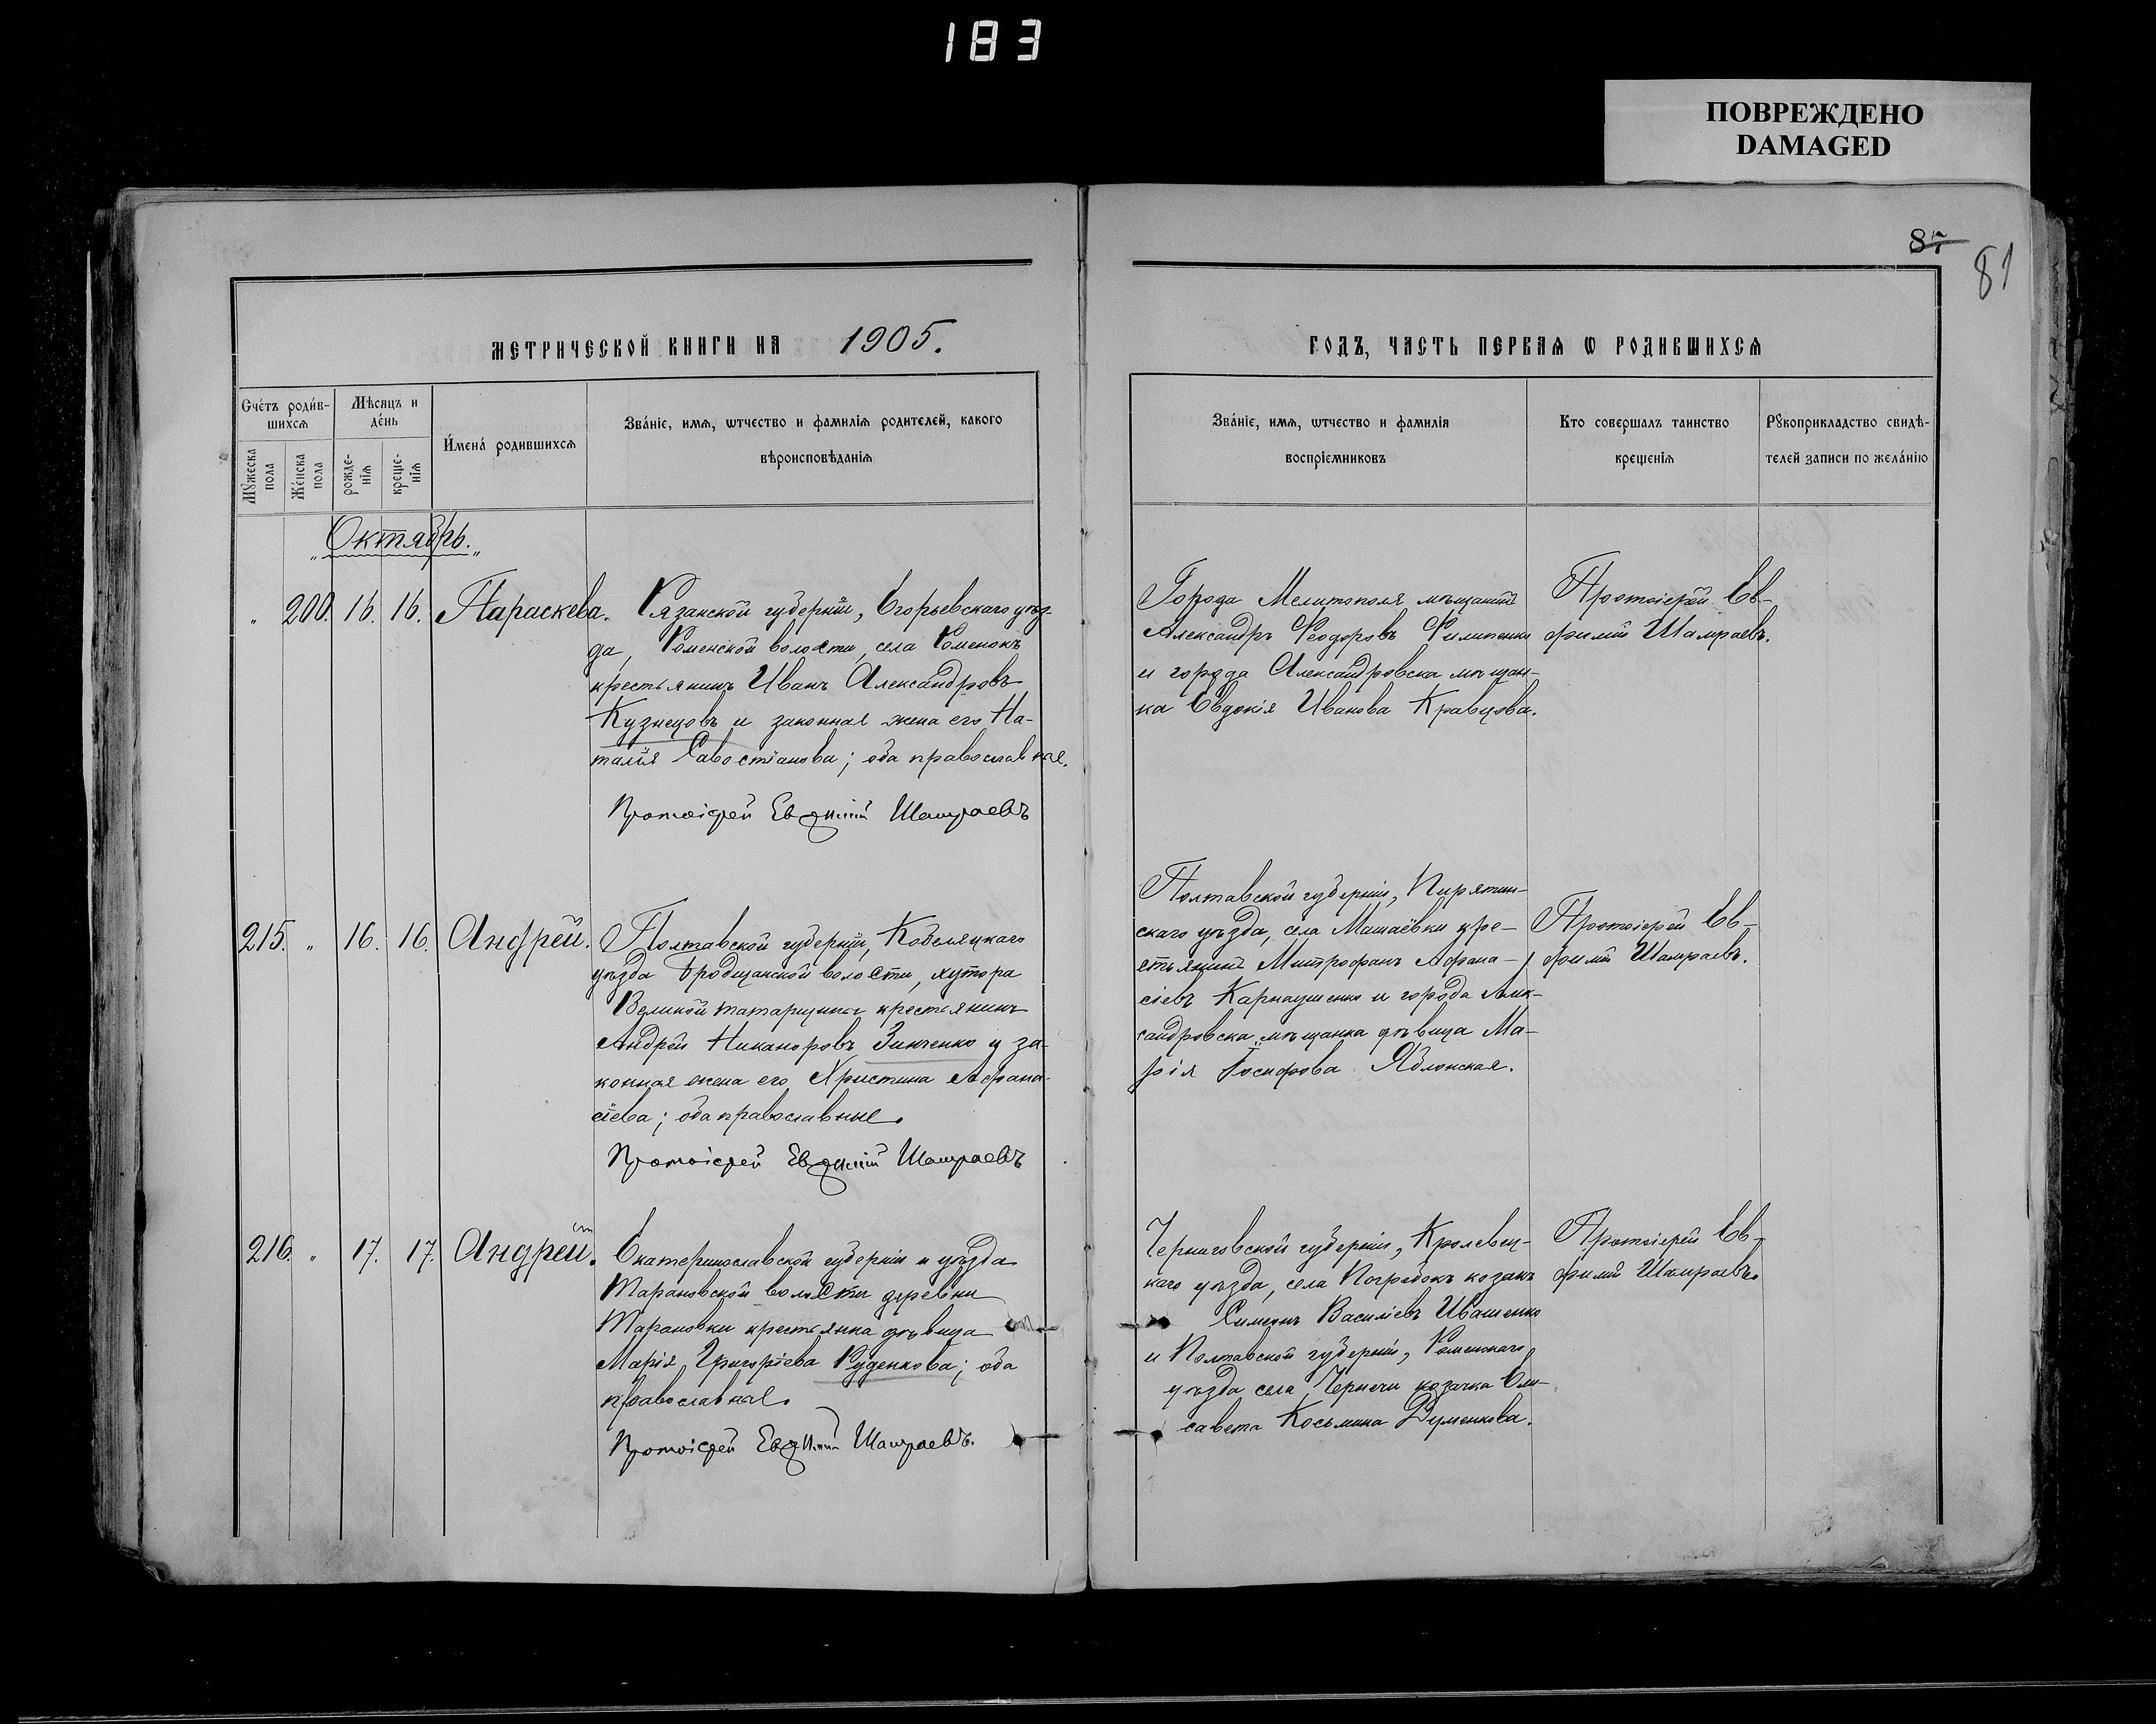 183
ПОВРЕЖДЕНО
DAMAGED
87
81
МЕТРИЧЕСКОЙ КНИГИ НА 1905.
ГОДЪ, ЧАСТЬ ПЕРВАЯ Ѡ РОДИВШИХСЯ
Счётъ родив-
шихся
Мѣсяцъ и
день
Мꙋжеска
пола
Женска
пола
рожде-
нія
креще-
нія
Имена родившихся
Званіе, имя, ѡтчество и фамилія родителей, какого
вѣроисповѣданія
Званіе, имя, ѡтчество и фамилія
воспріемниковъ
Кто совершалъ таинство
крещенія
Рꙋкоприкладство свидѣ-
телей записи по желанію
„Октябрь.„
„ 200. 16. 16. Параскева.
Рязанской губерніи, Егорьевскаго уѣз
да, Роменской волости, села Роменокъ
крестьянинъ Иванъ Александровъ
Кузнецовъ и законная жена его На-
талія Савостіанова; оба православные.
Протоіерей Евѳимій Шамраевъ
Города Мелитополя мѣщанинъ
Александръ Ѳеодоровъ Филипенко
и города Александровска мѣщан-
ка Евдокія Иванова Кравцова.
Протоіерей Ев-
фимій Шамраевъ.
215. „ 16. 16. Андрей.
Полтавской губерніи, Кобеляцкаго
уѣзда Бродщанской волости, хутора
Великой татарщины крестьянинъ
Андрей Никаноровъ Зинченко и за-
конная жена его Христина Афана-
сіева; оба православные.
Протоіерей Евѳимій Шамраевъ
Полтавской губерніи, Пирятин-
скаго уѣзда, села Машаёвки кре-
стьянинъ Митрофанъ Афана-
сіевъ Карнаушенко и города Алек-
сандровска мѣщанка дѣвица Ма-
рія Іосифова Яблонская.
Протоіерей Ев-
фимій Шамраевъ.
216. „ 17. 17. Андрей.
Екатеринославской губерніи и уѣзда
Тарановской волости деревни
Тарановки крестьянка дѣвица
Марія Григоріева Руденкова; оба
православные.
Протоіерей Евѳимій Шамраевъ.
Черниговской губерніи, Кролевец-
каго уѣзда, села Погребокъ козакъ
Симеонъ Василіевъ Ивашенко
и Полтавской губерніи, Роменскаго
уѣзда села Чернечи козачка Ели-
савета Косьмина Думенкова.
Протоіерей Ев-
фимій Шамраевъ.